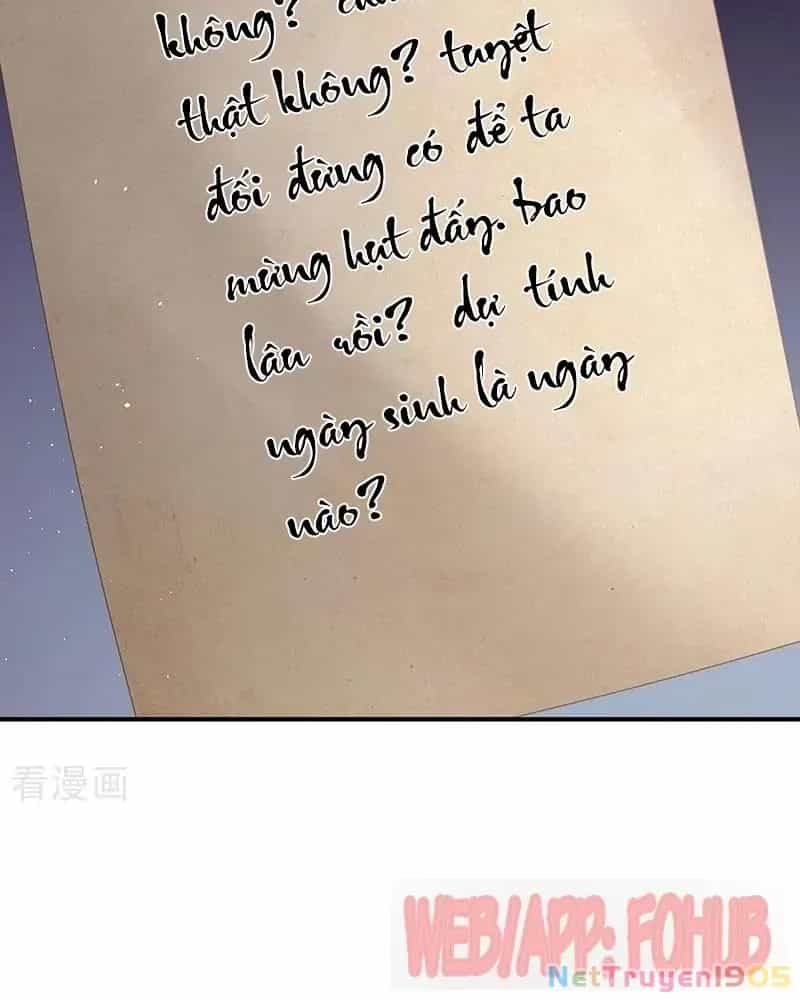 không?
thật không? tuyệt
đối đừng có để ta
mừng hụt đấy. bao
lâu rồi? dự tính
ngày sinh là ngày
nào?
看漫画
WEB/APP: FOHUB
NetTruyen1905